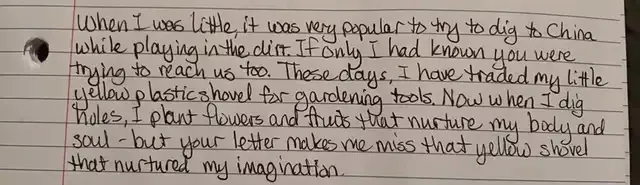 When I was little, it was very popular to try to dig to China
while playing in the dirt. If only I had known you were
trying to reach us too. These days, I have traded my little
yellow plastic shovel for gardening tools. Now when I dig
holes, I plant flowers and fruits that nurture my body and
soul - but your letter makes me miss that yellow shovel
that nurtured my imagination.